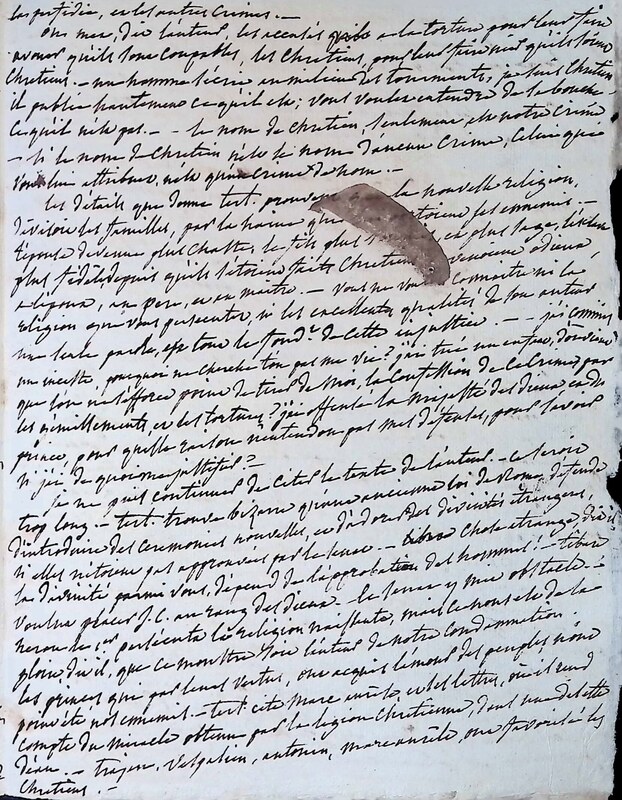 la perfidie, et les autres Crimes. —
On met, dit l'auteur, les accusés à la torture pour leur faire
avouer qu'ils sont coupables, les Chrétiens, pour leur faire nier qu'ils soient
Chrétiens. — un homme s'écrie au milieu des tourments, je suis Chretien
il publie hautement ce qu'il est; vous voulez entendre de sa bouche
ce qu'il n'est pas. — le nom de chretien, seulement est notre crime
— si le nom de Chretien n'est le nom d'aucun Crime, celui que
vous lui attribuez, n'est qu'un crime de nom. —
les détails que donne tert. la nouvelle religion,
divisoit les familles, par la haine que ses ennemis. —
l'épouse devenue plus chaste, le fils plus plus sage, l'esclave
plus fidele depuis qu'ils s'étoient faits Chretiens odieux
a l'epoux, au pere, et au maitre. — vous ne voulez connoitre ni la
religion que vous persecutez, ni les excellentes qualités de son auteur
une seule parole, est tout le fond.t de cette injustice. — j'ai commis
un inceste, pourquoi ne cherche t'on pas ma vie? j'ai tué un enfant, d'où vient
que l'on ne s'efforce point de tirer de moi, la Confession de ce Crime par
les et les tortures? j'ai offensé la majesté des dieux ou du
prince, pour quelle raison n'entend on pas mes défenses, pour savoir
si j'ai de quoi me justifier?
Je ne puis continuer de citer le texte de l'auteur. — ce seroit
trop long. — tert. trouve bizarre qu'une ancienne loi de Rome défende
d'introduire des ceremonies nouvelles, et d'adorer des divinités etrangeres,
si elles n'étoient pas approuvées par le senat. — Chose etrange, dit il
la divinité parmi vous, dépend de l'approbation des hommes! — tibere
voulut placer J.C. au rang des dieux. — le senat y mit obstacle. —
neron le 1.er persécuta la religion naissante, mais ce nous est de la
gloire dit il, que ce monstre soit l'auteur de notre Condamnation.
les princes qui par leurs vertus, ont acquis l'amour des peuples n'ont
point été nos ennemis. — tert. cite Marc aurele, et les lettres, où il rend
compte du miracle obtenu par la légion chretienne, dont une de cette
— trajan, Vespasien, antonin, marc aurele, ont favorisé les
Chretiens. —